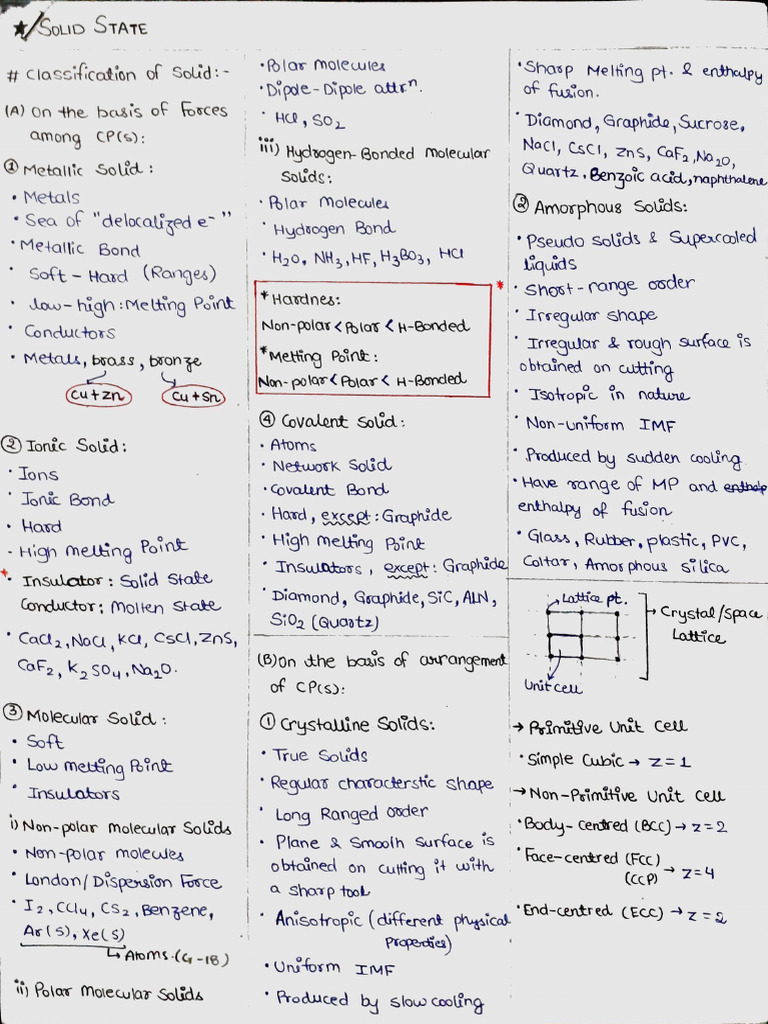 ★/SOLID STATE
# Classification of Solid:-
(A) On the basis of Forces
among CP(s):
① Metallic Solid:
• Metals
• Sea of "delocalized e⁻"
• Metallic Bond
• Soft - Hard (Ranges)
• low-high: Melting Point
• Conductors
• Metals, brass, bronze
Cu+Zn Cu+Sn
② Ionic Solid:
• Ions
• Ionic Bond
• Hard
- High melting Point
* • Insulator: Solid State
Conductor: Molten State
• CaCl₂, NaCl, KCl, CsCl, ZnS,
CaF₂, K₂SO₄, Na₂O.
③ Molecular Solid:
• Soft
• Low melting Point
• Insulators
i) Non-polar molecular Solids
• Non-polar molecules
• London/Dispersion Force
• I₂, CCl₄, CS₂, Benzene,
Ar(S), Xe(S)
↳ Atoms (G-18)
ii) Polar Molecular Solids
• Polar molecules
• Dipole-Dipole attrⁿ.
• HCl, SO₂
iii) Hydrogen-Bonded Molecular
Solids:
• Polar Molecules
• Hydrogen Bond
• H₂O, NH₃, HF, H₃BO₃, HCl
* Hardnes: *
Non-polar < Polar < H-Bonded
* Melting Point:
Non-polar < Polar < H-Bonded
④ Covalent Solid:
• Atoms
• Network Solid
• Covalent Bond
• Hard, except: Graphide
• High melting Point
• Insulators, except: Graphide
• Diamond, Graphide, SiC, AlN,
SiO₂ (Quartz)
(B) On the basis of arrangement
of CP(s):
① Crystalline Solids:
• True Solids
• Regular characterstic shape
• Long Ranged order
• Plane & Smooth Surface is
obtained on cutting it with
a sharp tool
• Anisotropic (different physical
properties)
• Uniform IMF
• Produced by slow cooling
• Sharp Melting pt. & enthalpy
of fusion.
• Diamond, Graphide, Sucrose,
NaCl, CsCl, ZnS, CaF₂, Na₂O,
Quartz, Benzoic acid, naphthalene
② Amorphous Solids:
• Pseudo Solids & Supercooled
liquids
• Short-range order
• Irregular shape
• Irregular & rough surface is
obtained on cutting
• Isotropic in nature
• Non-uniform IMF
• Produced by sudden cooling
• Have range of MP and enthalp
enthalpy of fusion
• Glass, Rubber, plastic, PVC,
Coltar, Amorphous silica
Lattice pt.
→ Crystal/Space
Lattice
Unit cell
→ Primitive Unit Cell
• Simple Cubic → z=1
→ Non-Primitive Unit Cell
• Body-centred (BCC) → z=2
• Face-centred (FCC)
(CCP) → z=4
• End-centred (ECC) → z=2